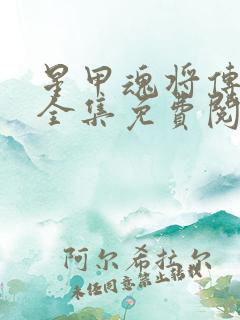 星甲魂将傳
全集免費閱
阿尔希拉尔
未经同意禁止转载